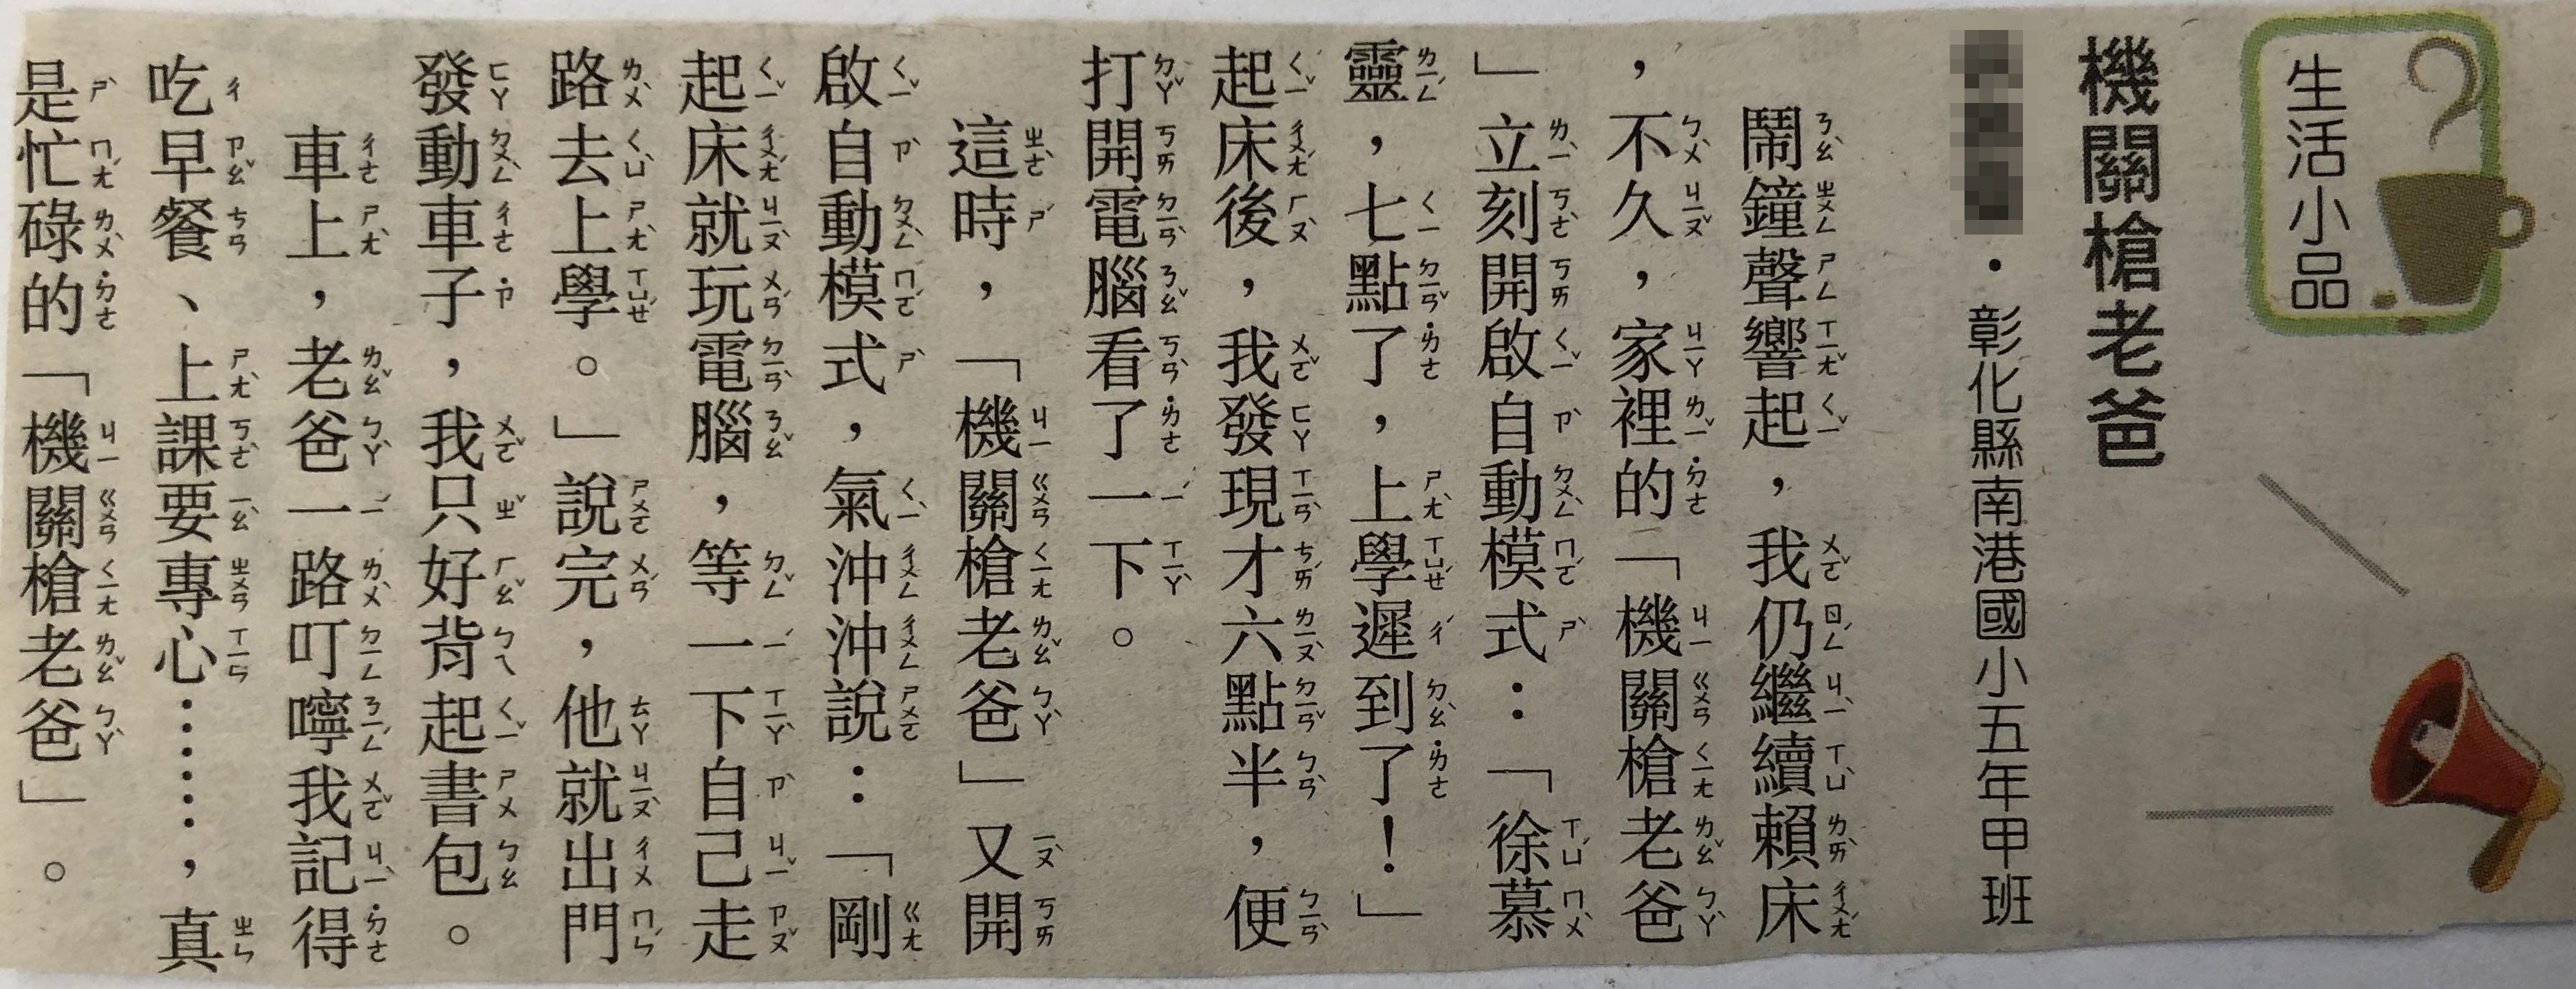 生活小品
機關槍老爸
・彰化縣南港國小五年甲班
鬧鐘聲響起，我仍繼續賴床
，不久，家裡的「機關槍老爸
」立刻開啟自動模式：「徐慕
靈，七點了，上學遲到了！」
起床後，我發現才六點半，便
打開電腦看了一下。
這時，「機關槍老爸」又開
啟自動模式，氣沖沖說：「剛
起床就玩電腦，等一下自己走
路去上學。」說完，他就出門
發動車子，我只好背起書包。
車上，老爸一路叮嚀我記得
吃早餐、上課要專心……，真
是忙碌的「機關槍老爸」。